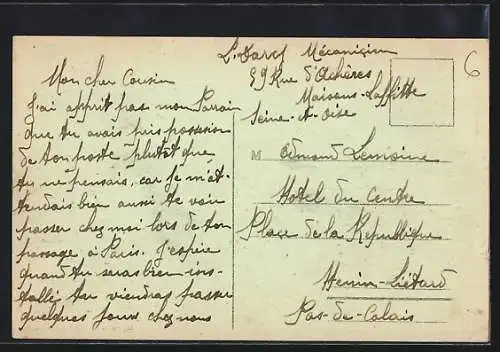 L. Darcy Mécanicien
59 Rue d'Achères
Maisons-Laffitte
Seine-et-Oise
6
Mon cher Cousin
J'ai apprit pas mon Parain
que tu avais pris possession
de ton poste plutôt que
tu ne pensais, car je m'at-
tendais bien aussi te voir
passer chez moi lors de ton
passage à Paris. J'espère
quand tu seras bien ins-
tallé tu viendras passer
quelques jours chez nous
M Edmond Lemoine
Hotel du Centre
Place de la République
Henin-Liétard
Pas-de-Calais